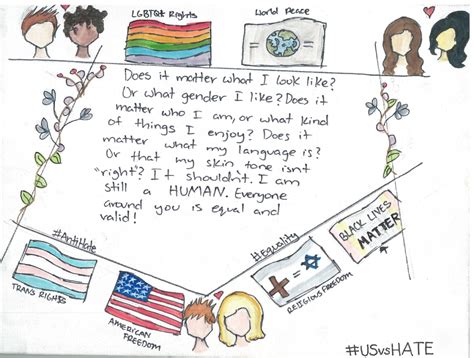 LGBTQ+ Rights
World Peace
Does it matter what I look like?
Or what gender I like? Does it
matter who I am, or what kind
of things I enjoy? Does it
matter what my language is?
Or that my skin tone isnt
"right"? It shouldn't. I am
still a HUMAN. Everyone
around you is equal and
valid!
#AntiHate
#Equality
BLACK LIVES
MATTER
TRANS RIGHTS
AMERICAN
FREEDOM
RELIGIOUS FREEDOM
#USvsHATE